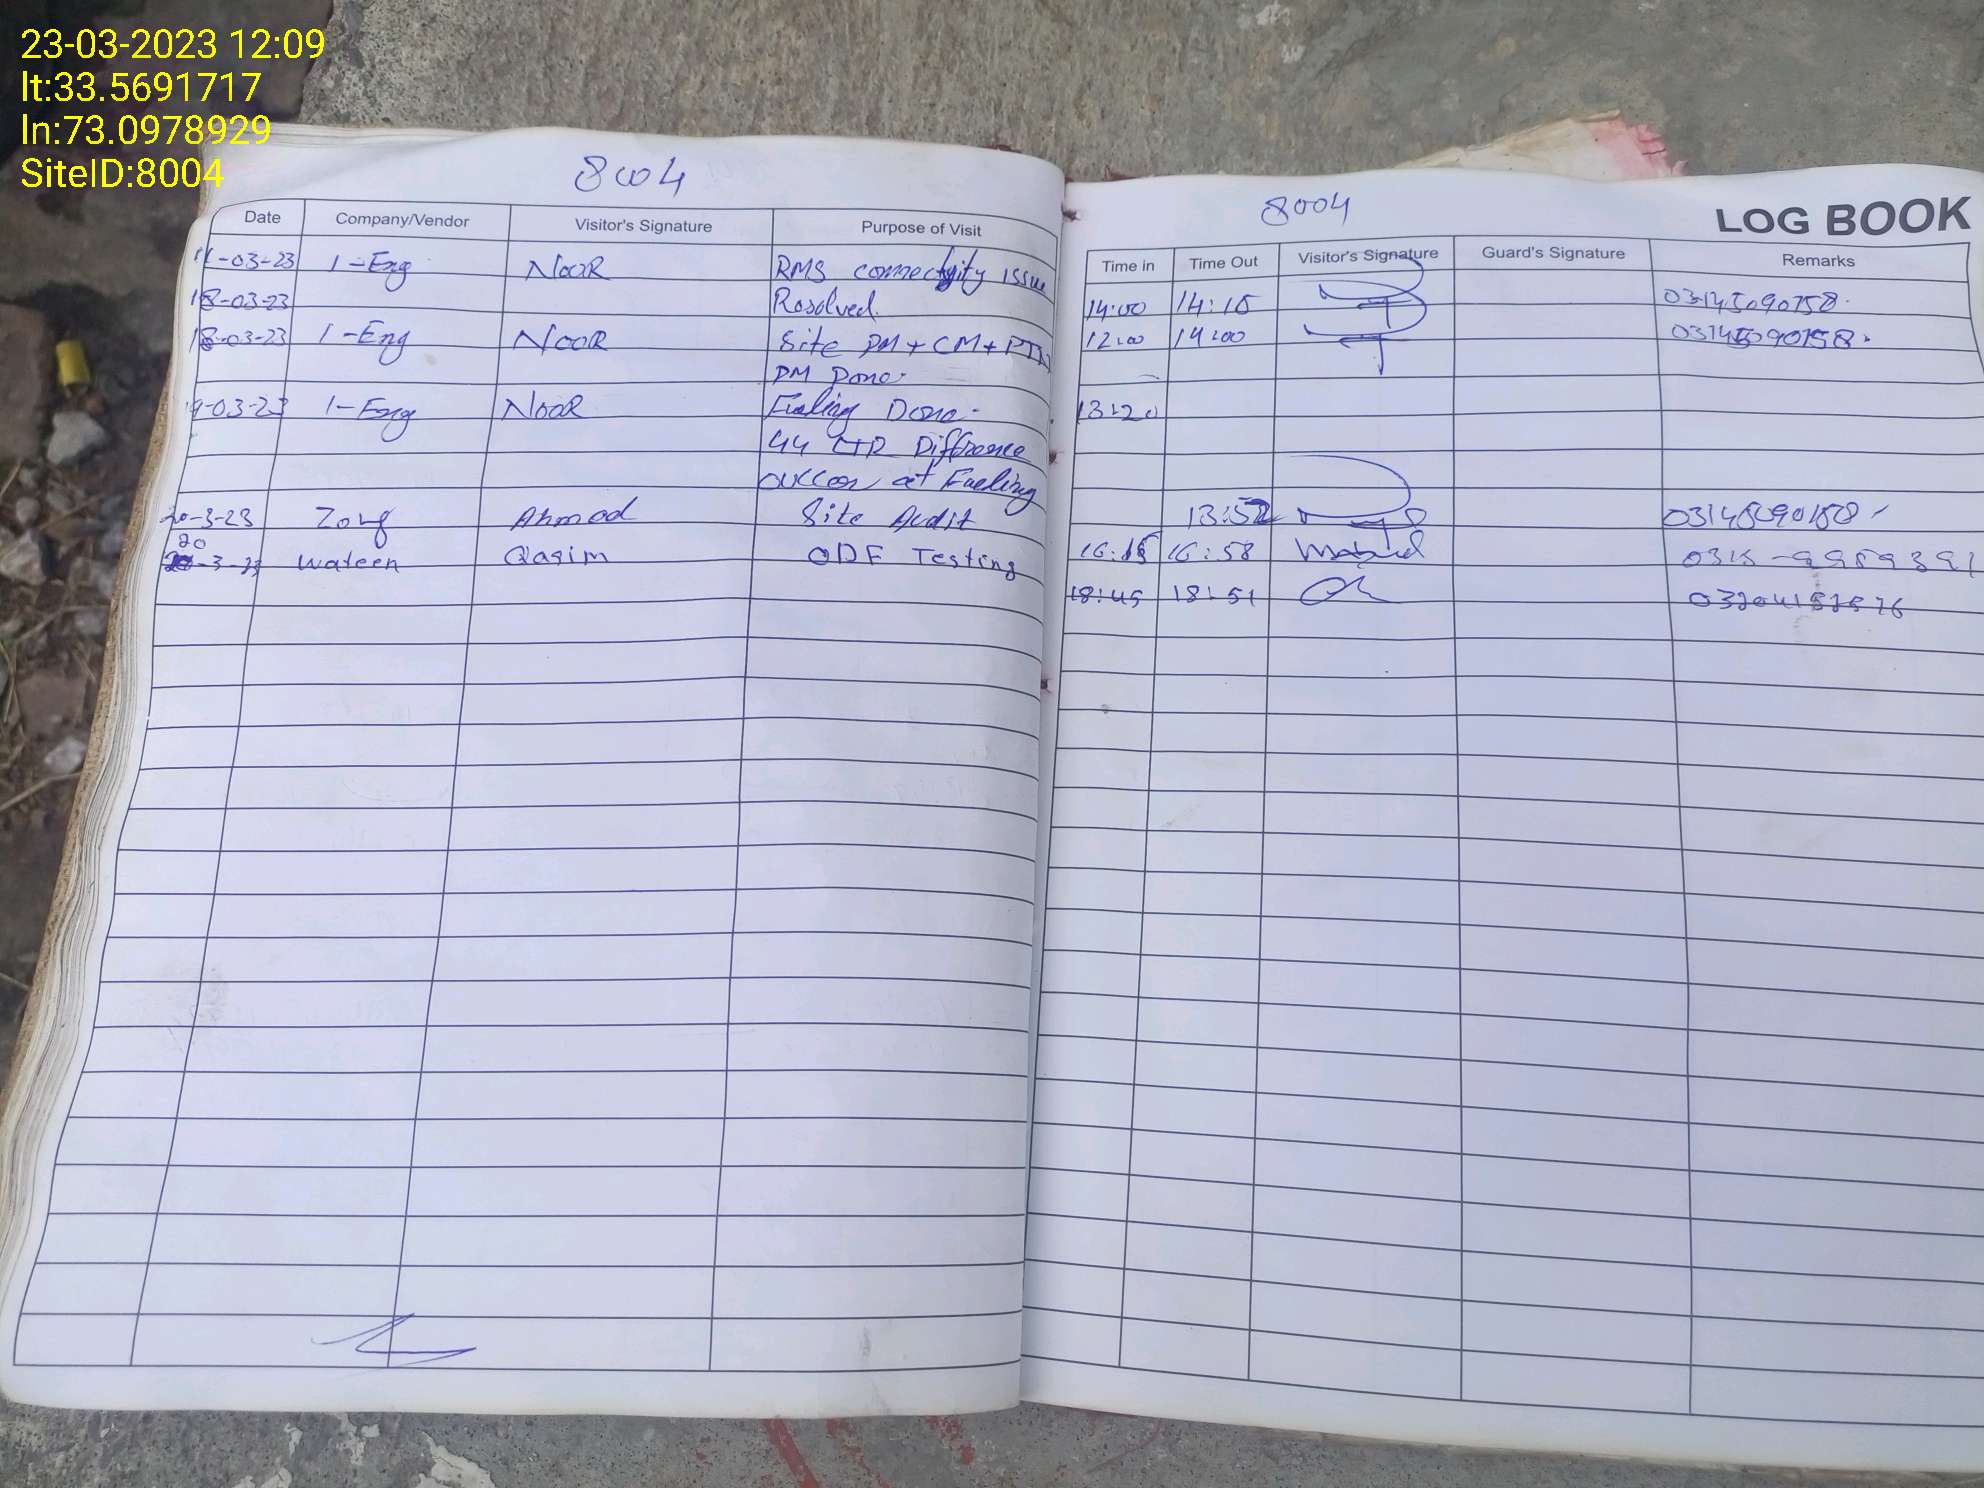 23-03-2023 12:09
lt:33.5691717
ln:73.0978929
SiteID:8004
8004
Date Company/Vendor Visitor's Signature Purpose of Visit
11-03-23 I-Eng NOOR RMS connectyity issue
18-03-23 Resolved.
18-03-23 I-Eng NOOR Site PM + CM + PTN
PM Done.
19-03-23 I-Eng NOOR Fueling Done.
44 LTR Difference
at Fueling
20-3-23 Zong Ahmad Site Audit
20
-3-23 wateen Qasim ODF Testing
8004
LOG BOOK
Time in Time Out Visitor's Signature Guard's Signature Remarks
14:00 14:15 03145090158.
12:00 14:00 03145090158.
13:20
13:52 03145090158
16:15 16:58 0315-9959391
18:45 18:51 03204152576